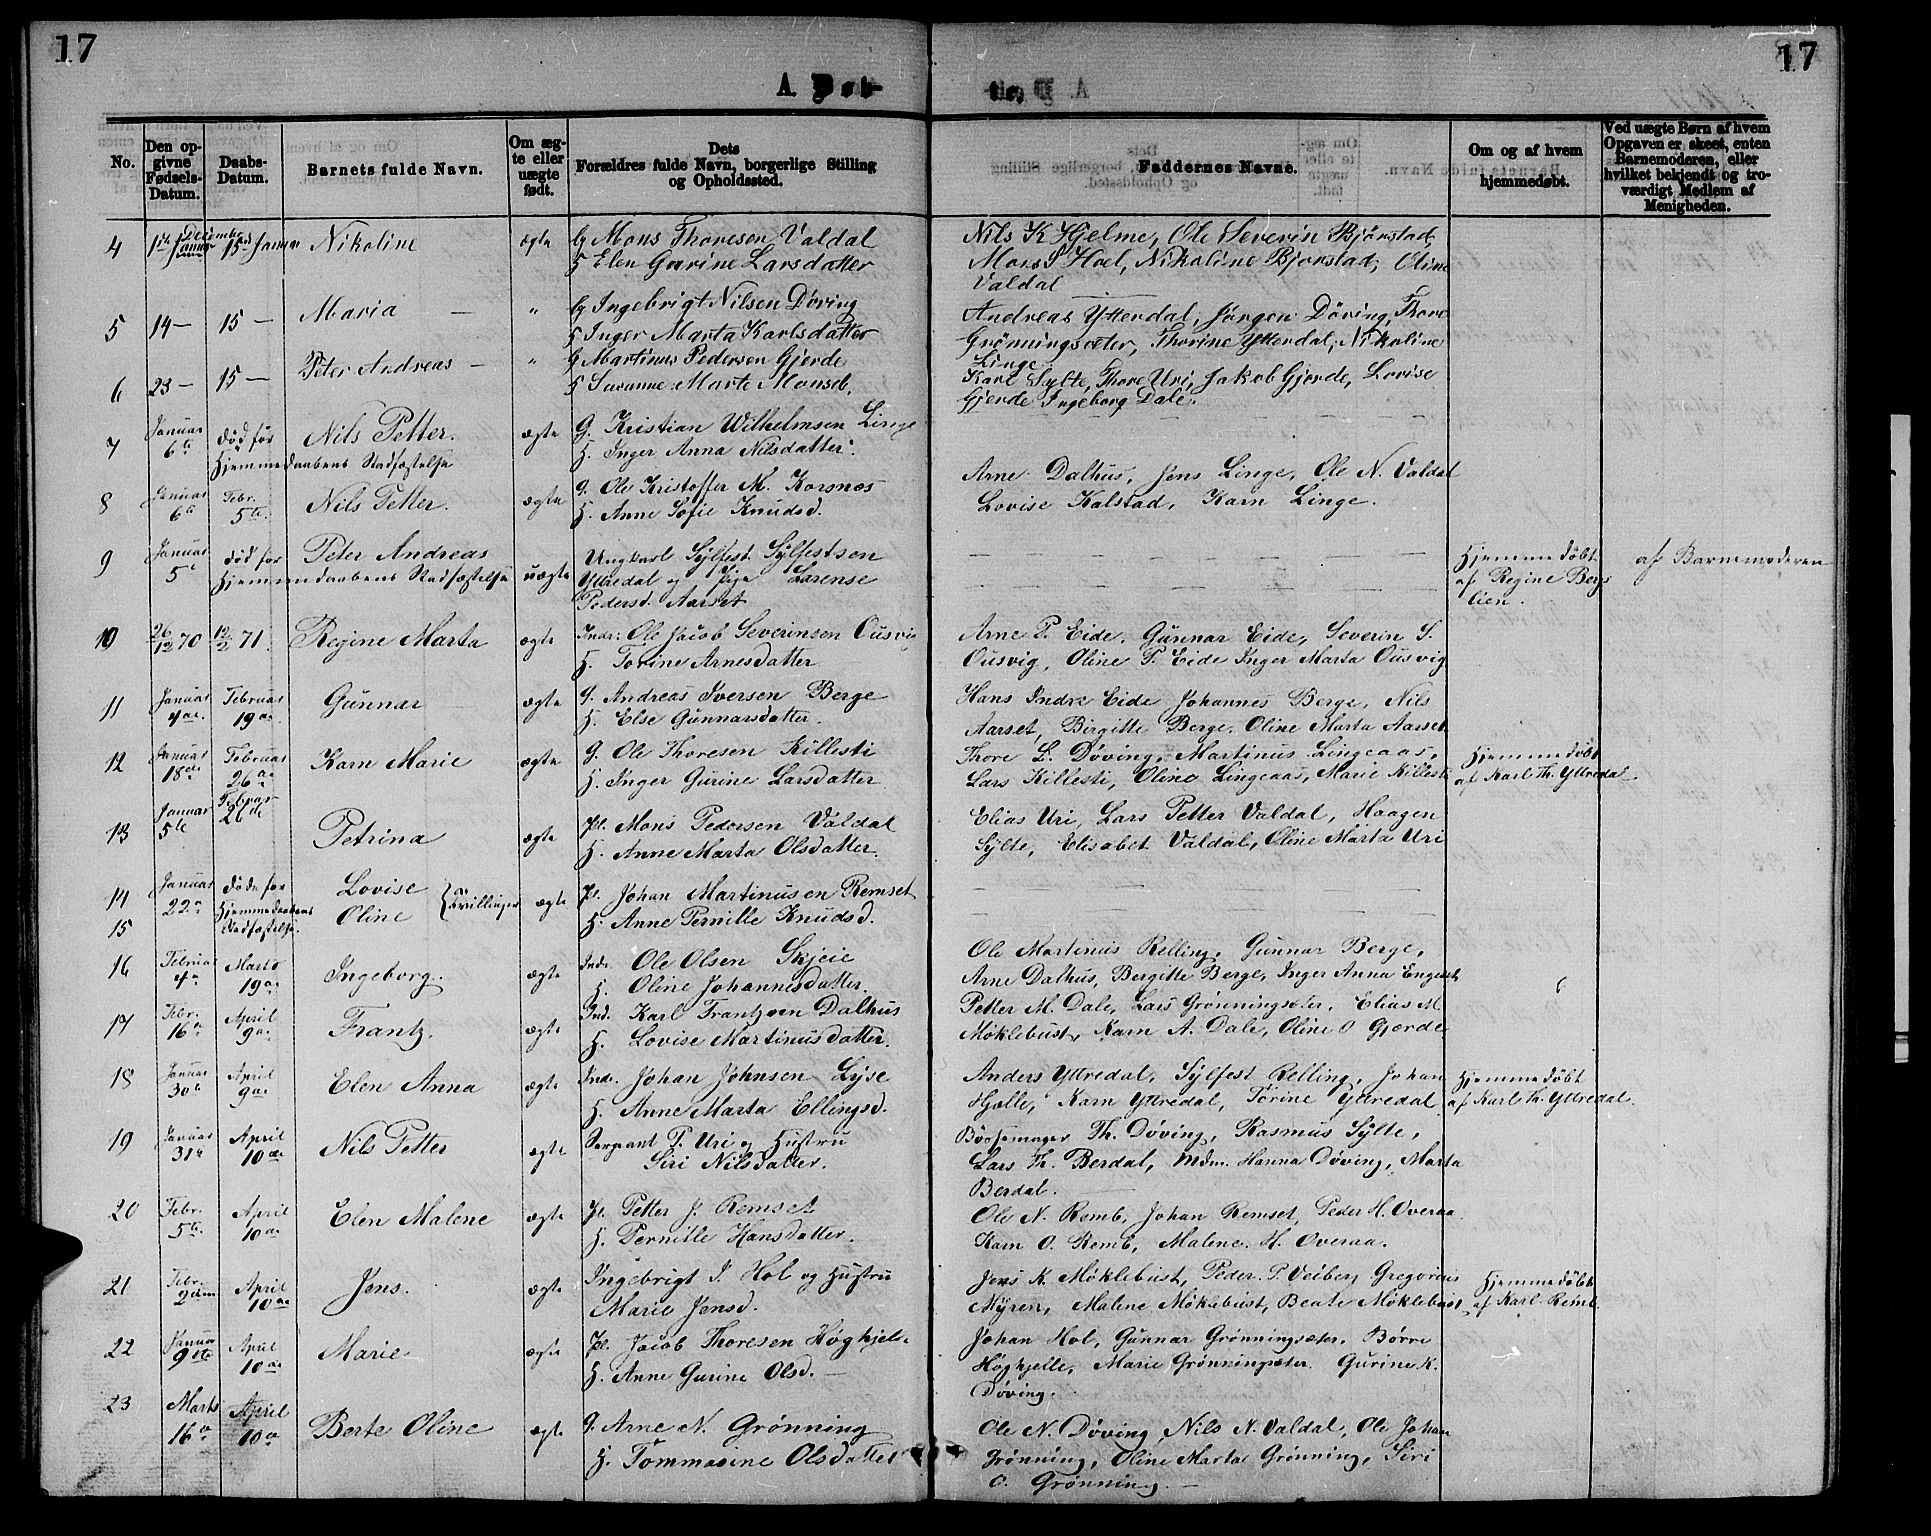 17
17
A. Døb-
te.
No.
Den opgivne Fødsels-Datum.
Daabs-Datum.
Barnets fulde Navn.
Om ægte eller uægte født.
Dets Forældres fulde Navn, borgerlige Stilling og Opholdssted.
Faddernes Navne.
Om og af hvem hjemmedøbt.
Ved uægte Børn af hvem Opgaven er skeet, enten Barnemoderen, eller hvilket bekjendt og troværdigt Medlem af Menigheden.
4 15 Januar Nikoline ægte g Mons Thoresen Valdal Nils K Hjelme, Ole Severin Bjørstad,
H Elen Gurine Larsdatter Mons Hoel, Nikoline Bjorstad, Oline
Valdal
5 14 — 15 — Maria — " g Ingebrigt Nilsen Døving Andreas Ytterdal, Jørgen Döring, Thore
H Inger Marta Karlsdatter Grønningsæter, Thorine Ytterdal, Nikoline
Linge
6 23 — 15 — Peter Andreas — " g Martinus Pedersen Gjerde Karl Sylte, Thore Uri, Jakob Gjerde, Lovise
H Susanne Marte Monsd. Gjerde Ingeborg Dale.
7 Januar 6te død før Nils Petter. ægte G. Kristian Wilhelmsen Linge
Hjemmedaabens Stadfæstelse H. Inger Anna Nilsdatter.
8 Januar 6te Febr. 5te Nils Petter. ægte g. Ole Kristoffer M. Korsnes Arne Dalhus, Jens Linge, Ole N. Valdal
H. Anne Sofie Knudsd. Lovise Kalstad, Karn Linge.
9 Januar 5te død før Peter Andreas uægte Ungkarl Sylfest Sylfestsen Hjemmedöbt af Barnemoderen
Hjemmedaabens Stadfæstelse Yttredal og Pige Larense af Regine Berg
Pedersd. Aarset lien.
10 26/12 70 12/2 71. Regine Marta ægte Indr: Ole Jacob Severinsen Ousvig Arne P. Eide, Gunnar Eide, Severin S.
H. Torine Arnesdatter Ousvig, Oline P. Eide Inger Marta Ousvig
11 Januar 4de. Februar 19de. Gunnar ægte g. Andreas Iversen Berge Hans Indre Eide Johannes Berge, Nils
H. Else Gunnarsdatter. Aarset, Birgitte Berge, Oline Marta Aarset
12 Januar 18de Februar 26de Karn Marie ægte G. Ole Thoresen Killesti Thore L. Døving, Martinus Lingeaas, Hjemmedöbt
H. Inger Gurine Larsdatter Lars Killesti, Oline Lingeaas, Marie Killesti af Karl Th. Yttredal.
13 Januar 5te Februar 26de Petrina ægte Pl. Mons Pedersen Valdal Elias Uri, Lars Petter Valdal, Haagen
H. Anne Marta Olsdatter. Sylte, Elisabet Valdal, Oline Marta Uri
14 Januar 22de døde før Lovise } Tvillinger ægte Pl. Johan Martinusen Remset
15 Hjemmedaabens Stadfæstelse. Oline H. Anne Pernille Knudsd.
16 Februar 4de Marts 19de Ingeborg. ægte Indr. Ole Olsen Skjeie Ole Martinus Relling, Gunnar Berge,
H. Oline Johannesdatter. Arne Dalhus, Bergitte Berge, Inger Anna Engeset
17 Febr. 16de April 9de Frantz. ægte Ind. Karl Frantzsen Dalhus Petter M. Dale, Lars Grønningsæter, Elias M.
H. Lovise Martinusdatter. Møklebust, Karn A. Dale, Oline O Gjerde
18 Januar 30te April 9de Elen Anna ægte Indr. Johan Johnsen Lyse Anders Yttredal, Sylfest Relling, Johan Hjemmedöbt
H. Anne Marta Ellingsd. Hjelle, Karn Yttredal, Torine Yttredal af Karl Th. Yttredal.
19 Januar 31te April 10de Nils Petter ægte Sergeant P. Uri og Hustru Bössemager Th. Døving, Rasmus Sylte,
Siri Nilsdatter. Lars Th. Berdal, Mdm. Hanna Døving, Marta
Berdal.
20 Febr. 5te. April 10de Elen Malene ægte Pl. Petter J. Remset Ole N. Remb, Johan Remset, Peder H. Overaa
H. Pernille Hansdatter. Karn O. Remb, Malene H. Overaa.
21 Febr. 2den April 10de Jens. ægte Ingebrigt I. Hol og Hustru Jens K. Møklebust, Peder P. Veiberg Gregorius Hjemmedöbt
Marie Jensd. Myren, Malene Møklebust, Beate Møklebust af Karl Remb.
22 Januar 9de April 10de Marie. ægte Pl. Jacob Thoresen Høghjelle Johan Hol, Gunnar Grønningsæter, Børre
H. Anne Gurine Olsd. — Høghjelle, Marie Grønningsæter. Gurine K.
Døving.
23 Marts 16de April 10de Berte Oline ægte g. Arne N. Grønning Ole N. Døving, Nils N. Valdal, Ole Johan
H. Tommasine Olsdatter Grønning, Oline Marta Grønning, Siri
O. Grønning. —